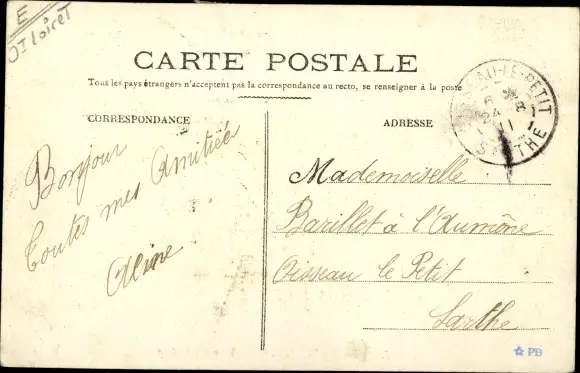 E
Loiret
CARTE POSTALE
Tous les pays étrangers n'acceptent pas la correspondance au recto, se renseigner à la poste
CORRESPONDANCE
ADRESSE
AU-LE-PETIT
24 - 8
11
SARTHE
Bonjour
Toutes mes Amitiée
Aline
Mademoiselle
Barillot à l'Aumône
Oisseau le Petit
Sarthe
PB